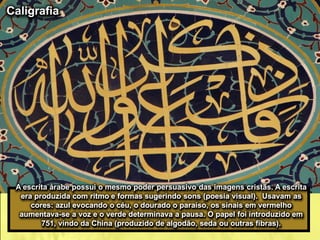 Caligrafia
A escrita árabe possui o mesmo poder persuasivo das imagens cristãs. A escrita
era produzida com ritmo e formas sugerindo sons (poesia visual). Usavam as
cores: azul evocando o céu, o dourado o paraíso, os sinais em vermelho
aumentava-se a voz e o verde determinava a pausa. O papel foi introduzido em
751, vindo da China (produzido de algodão, seda ou outras fibras).